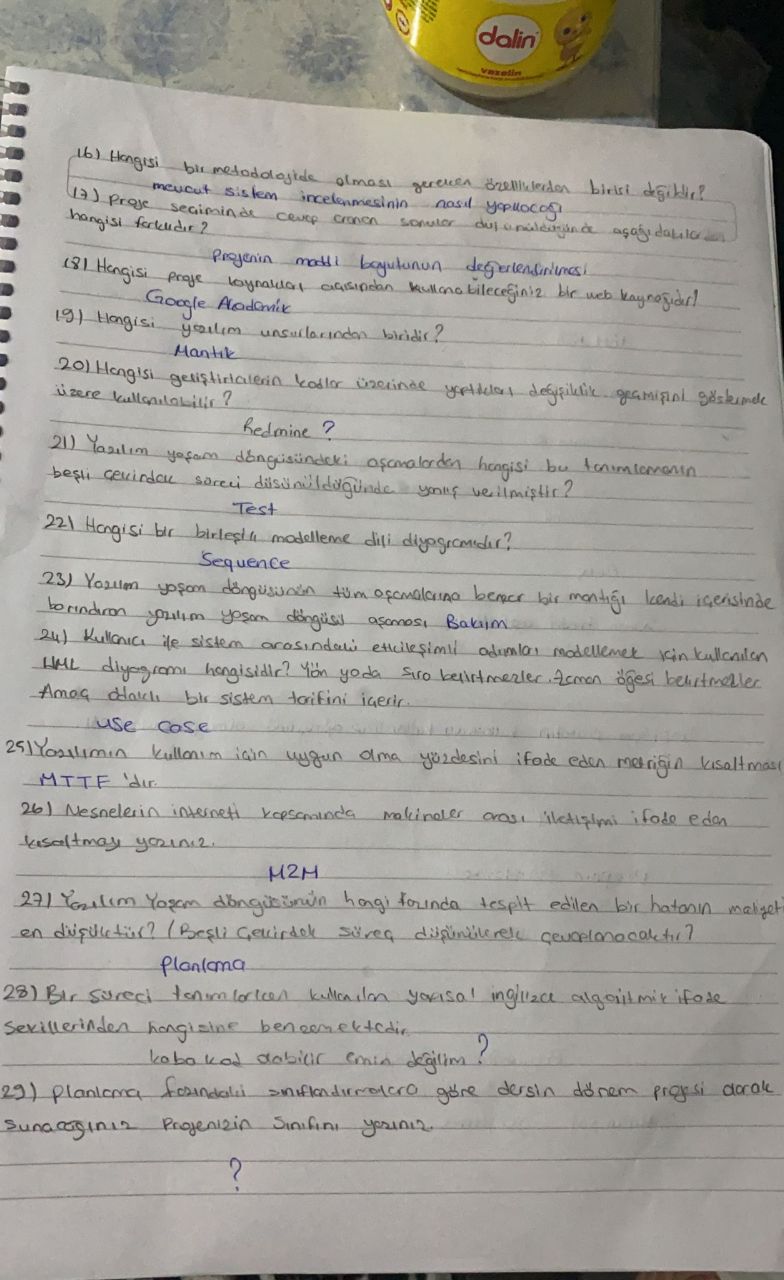 dalin
vazelin
16) Hangisi bir metodolojide olması gereken özelliklerden birisi değildir?
mevcut sistem incelenmesinin nasıl yapılacağı
17) Proje seçiminde cevap aranan sorular düşünüldüğünde aşağıdakilerden
hangisi farklıdır?
Projenin maddi boyutunun değerlendirilmesi
18) Hangisi proje kaynakları açısından kullanabileceğiniz bir web kaynağıdır?
Google Akademik
19) Hangisi yazılım unsurlarından biridir?
Mantık
20) Hangisi geliştiricilerin kodlar üzerinde yaptıkları değişiklik geçmişini göstermek
üzere kullanılabilir?
Redmine?
21) Yazılım yaşam döngüsündeki aşamalardan hangisi bu tanımlamanın
beşli çekirdek süreci düşünüldüğünde yanlış verilmiştir?
Test
22) Hangisi bir birleşik modelleme dili diyagramıdır?
Sequence
23) Yazılım yaşam döngüsünün tüm aşamalarına benzer bir mantığı kendi içerisinde
barındıran yazılım yaşam döngüsü aşaması Bakım
24) Kullanıcı ile sistem arasındaki etkileşimli adımları modellemek için kullanılan
UML diyagramı hangisidir? Yön yada sıra belirtmezler. Zaman öğesi belirtmezler
Amaç odaklı bir sistem tarifini içerir.
use case
25) Yazılımın kullanım için uygun olma yüzdesini ifade eden metriğin kısaltması
MTTF'dir.
26) Nesnelerin interneti kapsamında makineler arası iletişimi ifade eden
kısaltmayı yazınız.
M2M
27) Yazılım Yaşam döngüsünün hangi fazında tespit edilen bir hatanın maliyeti
en düşüktür? (Beşli Çekirdek Süreç düşünülerek cevaplanacaktır?
Planlama
28) Bir süreci tanımlarken kullanılan yapısal ingilizce algoritmik ifade
şekillerinden hangisine benzemektedir.
kaba kod olabilir emin değilim?
29) planlama fazındaki sınıflandırmalara göre dersin dönem projesi olarak
sunacağınız Projenizin Sınıfını yazınız.
?